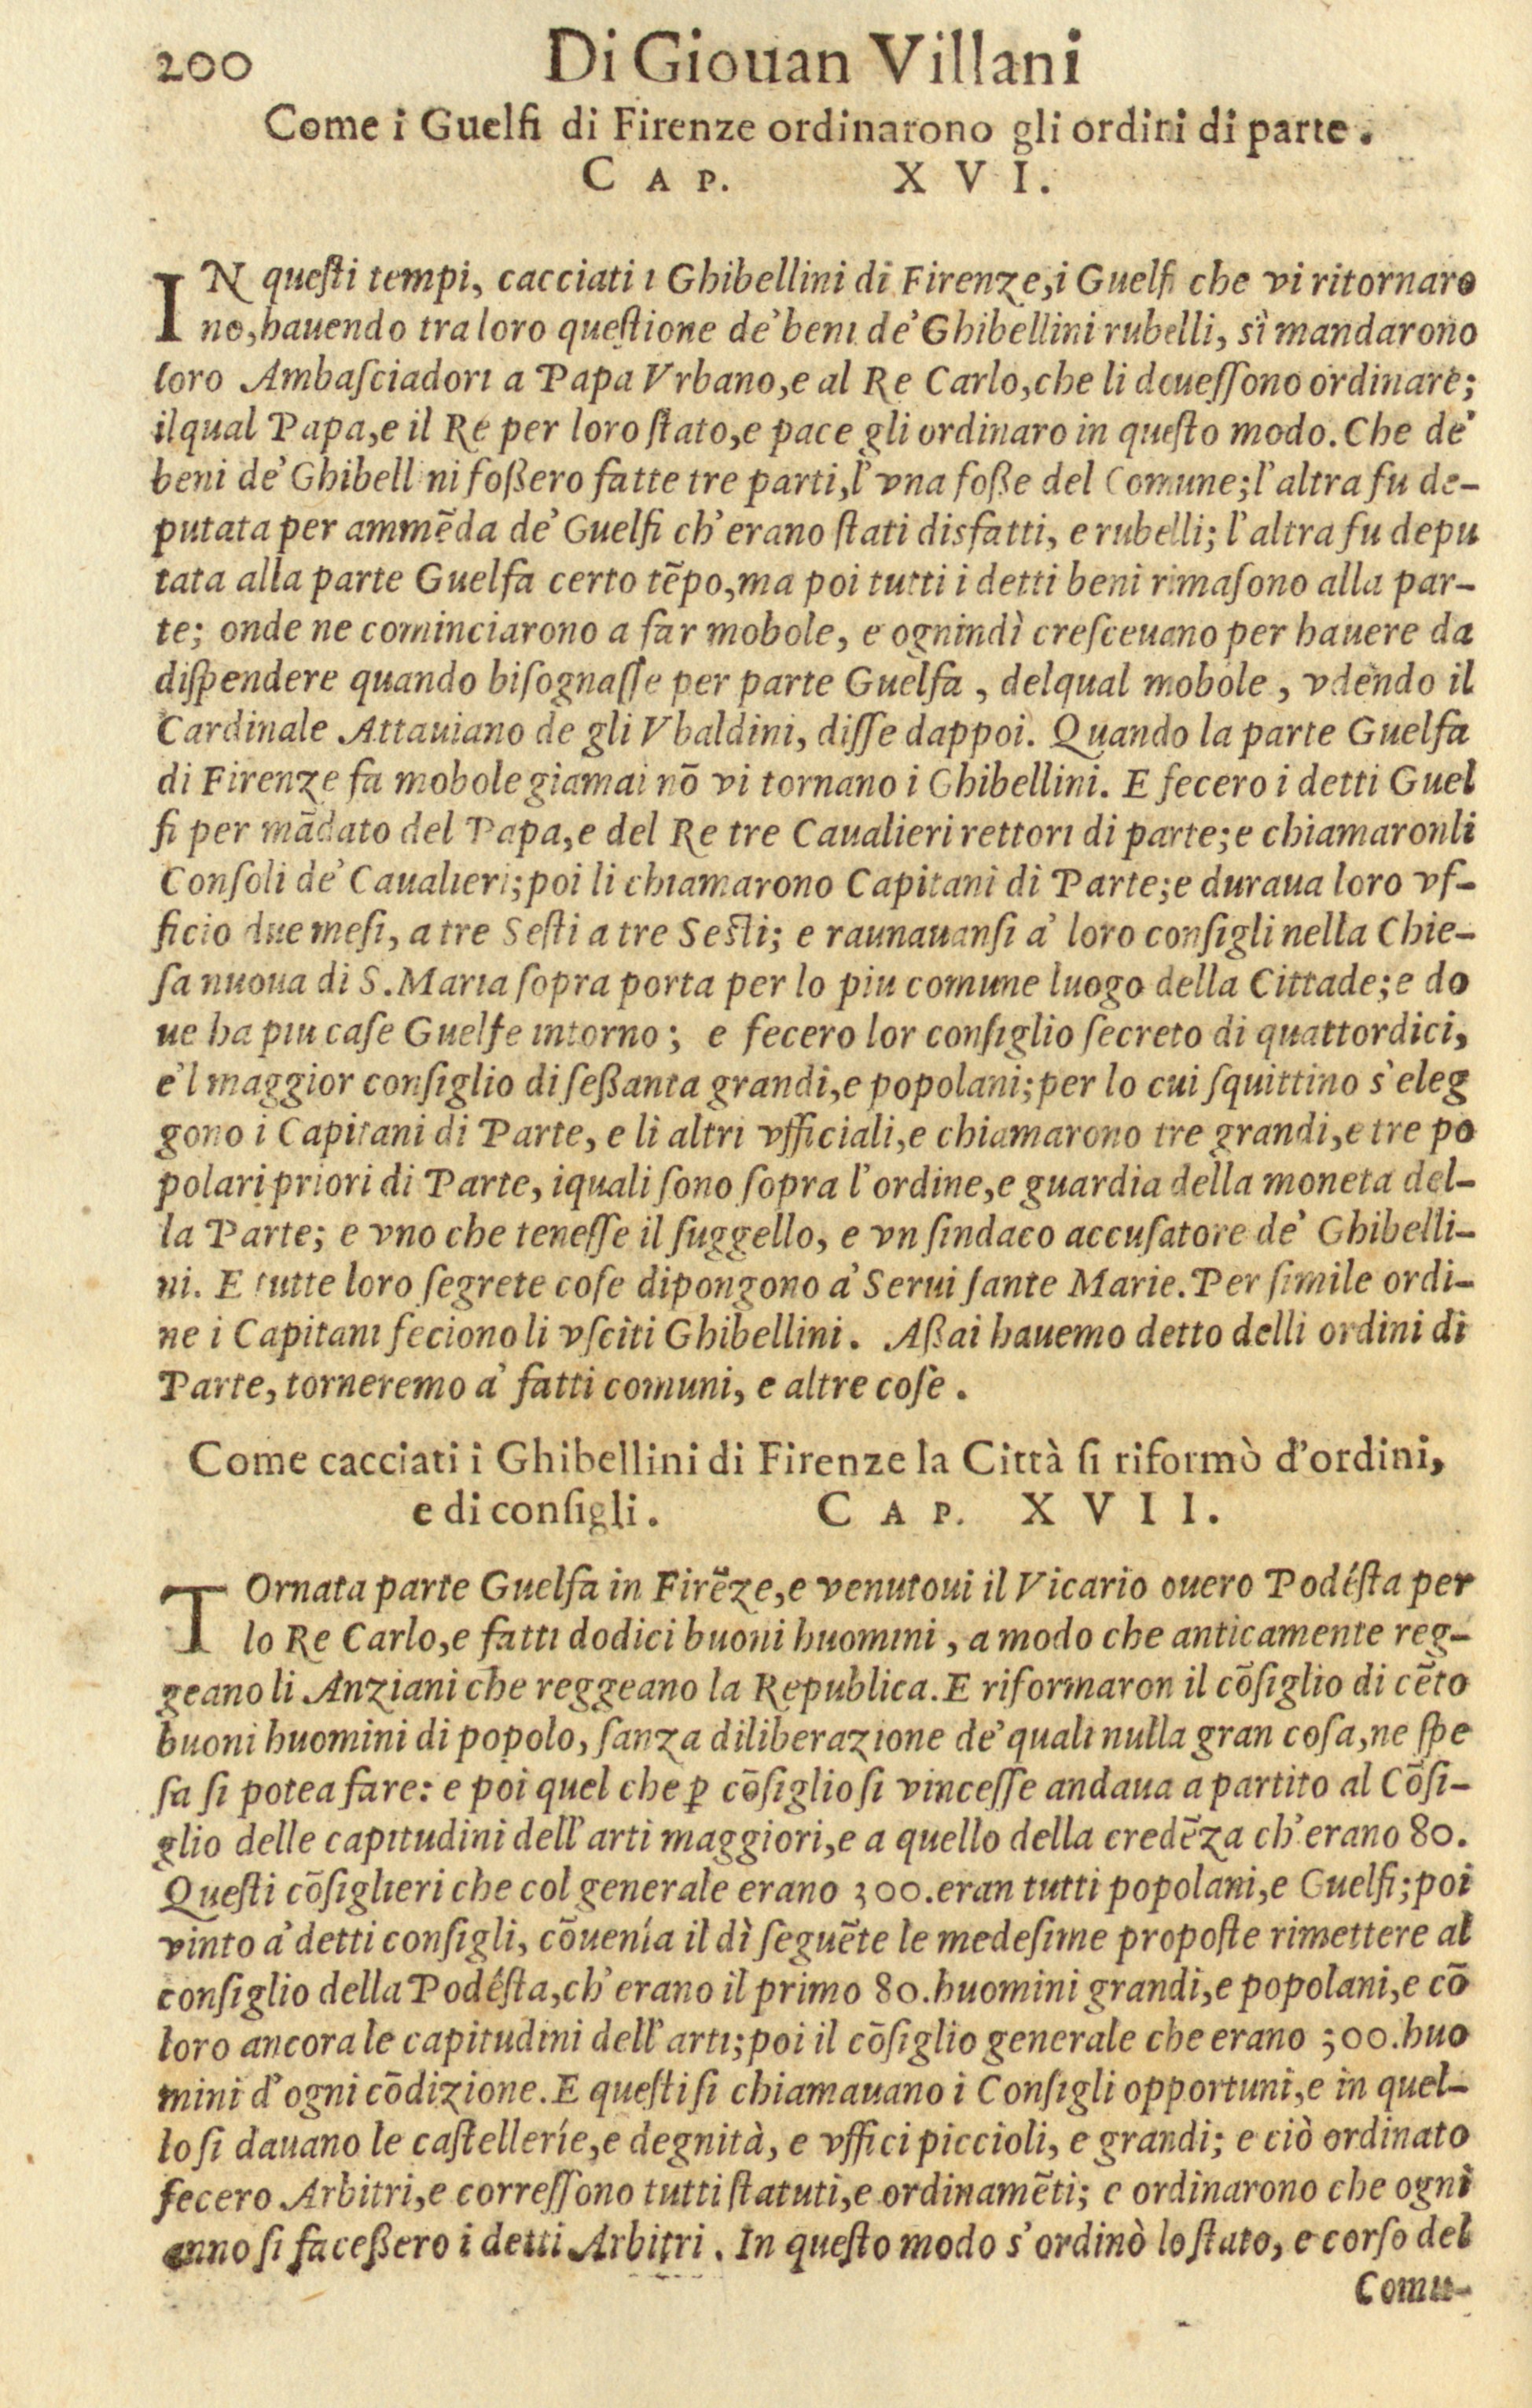 200 Di Giouan Villani
Come i Guelfi di Firenze ordinarono gli ordini di parte.
CAP. XVI.
IN queſti tempi, cacciati i Ghibellini di Firenze, i Guelfi che vi ritornaro
no, hauendo tra loro queſtione de' beni de' Ghibellini rubelli, sì mandarono
loro Ambaſciadori a Papa Vrbano, e al Re Carlo, che li doueſſono ordinare;
ilqual Papa, e il Re per loro ſtato, e pace gli ordinaro in queſto modo. Che de'
beni de' Ghibellini foßero fatte tre parti, l'vna foße del Comune; l'altra fu de-
putata per ammẽda de' Guelfi ch'erano ſtati disfatti, e rubelli; l'altra fu depu
tata alla parte Guelfa certo tẽpo, ma poi tutti i detti beni rimaſono alla par-
te; onde ne cominciarono a far mobole, e ognindì creſceuano per hauere da
diſpendere quando biſognaſſe per parte Guelfa, delqual mobole, vdendo il
Cardinale Attauiano de gli Vbaldini, diſſe dappoi. Quando la parte Guelfa
di Firenze fa mobole giamai nõ vi tornano i Ghibellini. E fecero i detti Guel
fi per mãdato del Papa, e del Re tre Caualieri rettori di parte; e chiamaronli
Conſoli de' Caualieri; poi li chiamarono Capitani di Parte; e duraua loro vf-
ficio due meſi, a tre Seſti a tre Seſti; e raunauanſi a' loro conſigli nella Chie-
ſa nuoua di S. Maria ſopra porta per lo piu comune luogo della Cittade; e do
ue ha piu caſe Guelfe intorno; e fecero lor conſiglio ſecreto di quattordici,
e'l maggior conſiglio di ſeßanta grandi, e popolani; per lo cui ſquittino s'eleg
gono i Capitani di Parte, e li altri vfficiali, e chiamarono tre grandi, e tre po
polari priori di Parte, iquali ſono ſopra l'ordine, e guardia della moneta del-
la Parte; e vno che teneſſe il ſuggello, e vn ſindaco accuſatore de' Ghibelli-
ni. E tutte loro ſegrete coſe dipongono a' Serui ſante Marie. Per ſimile ordi-
ne i Capitani feciono li vſciti Ghibellini. Aßai hauemo detto delli ordini di
Parte, torneremo a' fatti comuni, e altre coſe.
Come cacciati i Ghibellini di Firenze la Città ſi riformò d'ordini,
e di conſigli. CAP. XVII.
TOrnata parte Guelfa in Firẽze, e venutoui il Vicario ouero Podéſta per
lo Re Carlo, e fatti dodici buoni huomini, a modo che anticamente reg-
geano li Anziani che reggeano la Republica. E riformaron il cõſiglio di cẽto
buoni huomini di popolo, ſanza diliberazione de' quali nulla gran coſa, ne ſpe
ſa ſi potea fare: e poi quel che ꝑ cõſiglio ſi vinceſſe andaua a partito al Cõſi-
glio delle capitudini dell'arti maggiori, e a quello della credẽza ch'erano 80.
Queſti cõſiglieri che col generale erano 300. eran tutti popolani, e Guelfi; poi
vinto a' detti conſigli, cõuenía il dì ſeguẽte le medeſime propoſte rimettere al
conſiglio della Podéſta, ch'erano il primo 80. huomini grandi, e popolani, e cõ
loro ancora le capitudini dell'arti; poi il cõſiglio generale che erano 300. huo
mini d'ogni cõdizione. E queſti ſi chiamauano i Conſigli opportuni, e in quel-
lo ſi dauano le caſtelleríe, e degnità, e vffici piccioli, e grandi; e ciò ordinato
fecero Arbitri, e correſſono tutti ſtatuti, e ordinamẽti; e ordinarono che ogni
anno ſi faceßero i detti Arbitri. In queſto modo s'ordinò lo ſtato, e corſo del
Comu-